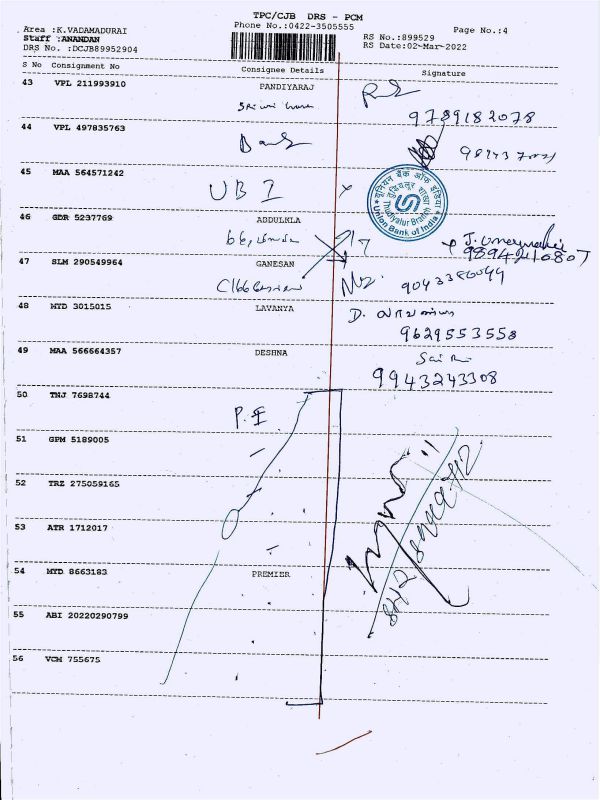 TPC/CJB DRS - PCM
Phone No.:0422-3505555
Page No.:4
Area :K.VADAMADURAI
Staff :ANANDAN
DRS No. :DCJB89952904
RS No.:899529
RS Date:02-Mar-2022
S No Consignment No Consignee Details Signature
43 VPL 211993910 PANDIYARAJ
9789182078
44 VPL 497835763
45 MAA 564571242
UBI
यूनियन बैंक ऑफ इंडिया
Thudiyalur Branch
Union Bank of India
46 GDR 5237769 ABDULKLA
9894210807
47 SLM 290549964 GANESAN
9043380099
48 MTD 3015015 LAVANYA
D. லாவண்யா
9629553558
49 MAA 566664357 DESHNA
9943243308
50 TNJ 7698744
51 GPM 5189005
52 TRZ 275059165
53 ATR 1712017
54 MYD 8663183 PREMIER
55 ABI 20220290799
56 VCM 755675